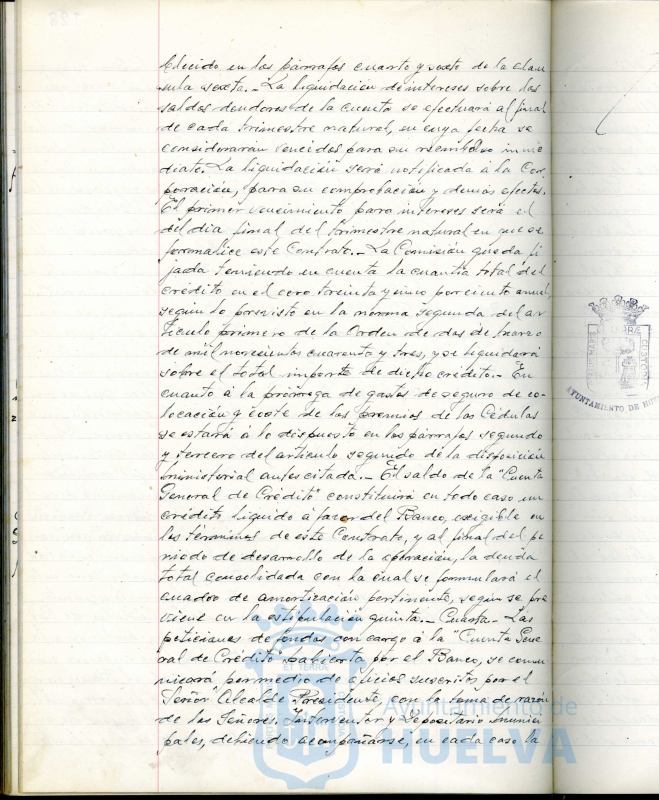 blecido en los párrafos cuarto y sexto de la cláu
sula sexta.- La liquidación de intereses sobre los
saldos deudores de la cuenta se efectuará al final
de cada trimestre natural, en cuya fecha se
considerarán vencidos para su reembolso inme
diato. La liquidación será notificada á la Cor
poración, para su comprobación y demás efectos.
El primer vencimiento para intereses será el
del día final del trimestre natural en que se
formalice este Contrato.- La Comisión queda fi
jada teniendo en cuenta la cuantía total del
crédito en el cero treinta y cinco por ciento anual,
según lo previsto en la norma segunda del ar
tículo primero de la Orden de dos de marzo
de mil novecientos cuarenta y tres, y se liquidará
sobre el total importe de dicho crédito.- En
cuanto á la prórroga de gastos de seguro de co-
locación y coste de los premios de las Cédulas
se estará á lo dispuesto en los párrafos segundo
y tercero del artículo segundo de la disposición
ministerial antes citada.- El saldo de la "Cuenta
General de Crédito" constituirá en todo caso un
crédito líquido á favor del Banco, exigible en
los términos de este Contrato, y al final del pe
riodo de desarrollo de la operación, la deuda
total consolidada con la cual se formulará el
cuadro de amortización pertinente, según se pre
viene en la estipulación quinta.- Cuarta.- Las
peticiones de fondos con cargo á la "Cuenta Gene
ral de Crédito" abierta por el Banco, se comu
nicará por medio de oficios suscritos por el
Señor Alcalde Presidente, con la toma de razón
de los Señores, Interventor y Depositario munici
pales, debiendo acompañarse, en cada caso la
AYUNTAMIENTO DE HUE
ET TERRAE
Ayuntamiento de
HUELVA